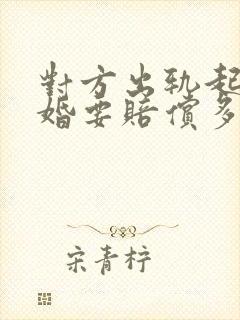 對方出軌起
婚要賠償多
宋青梓